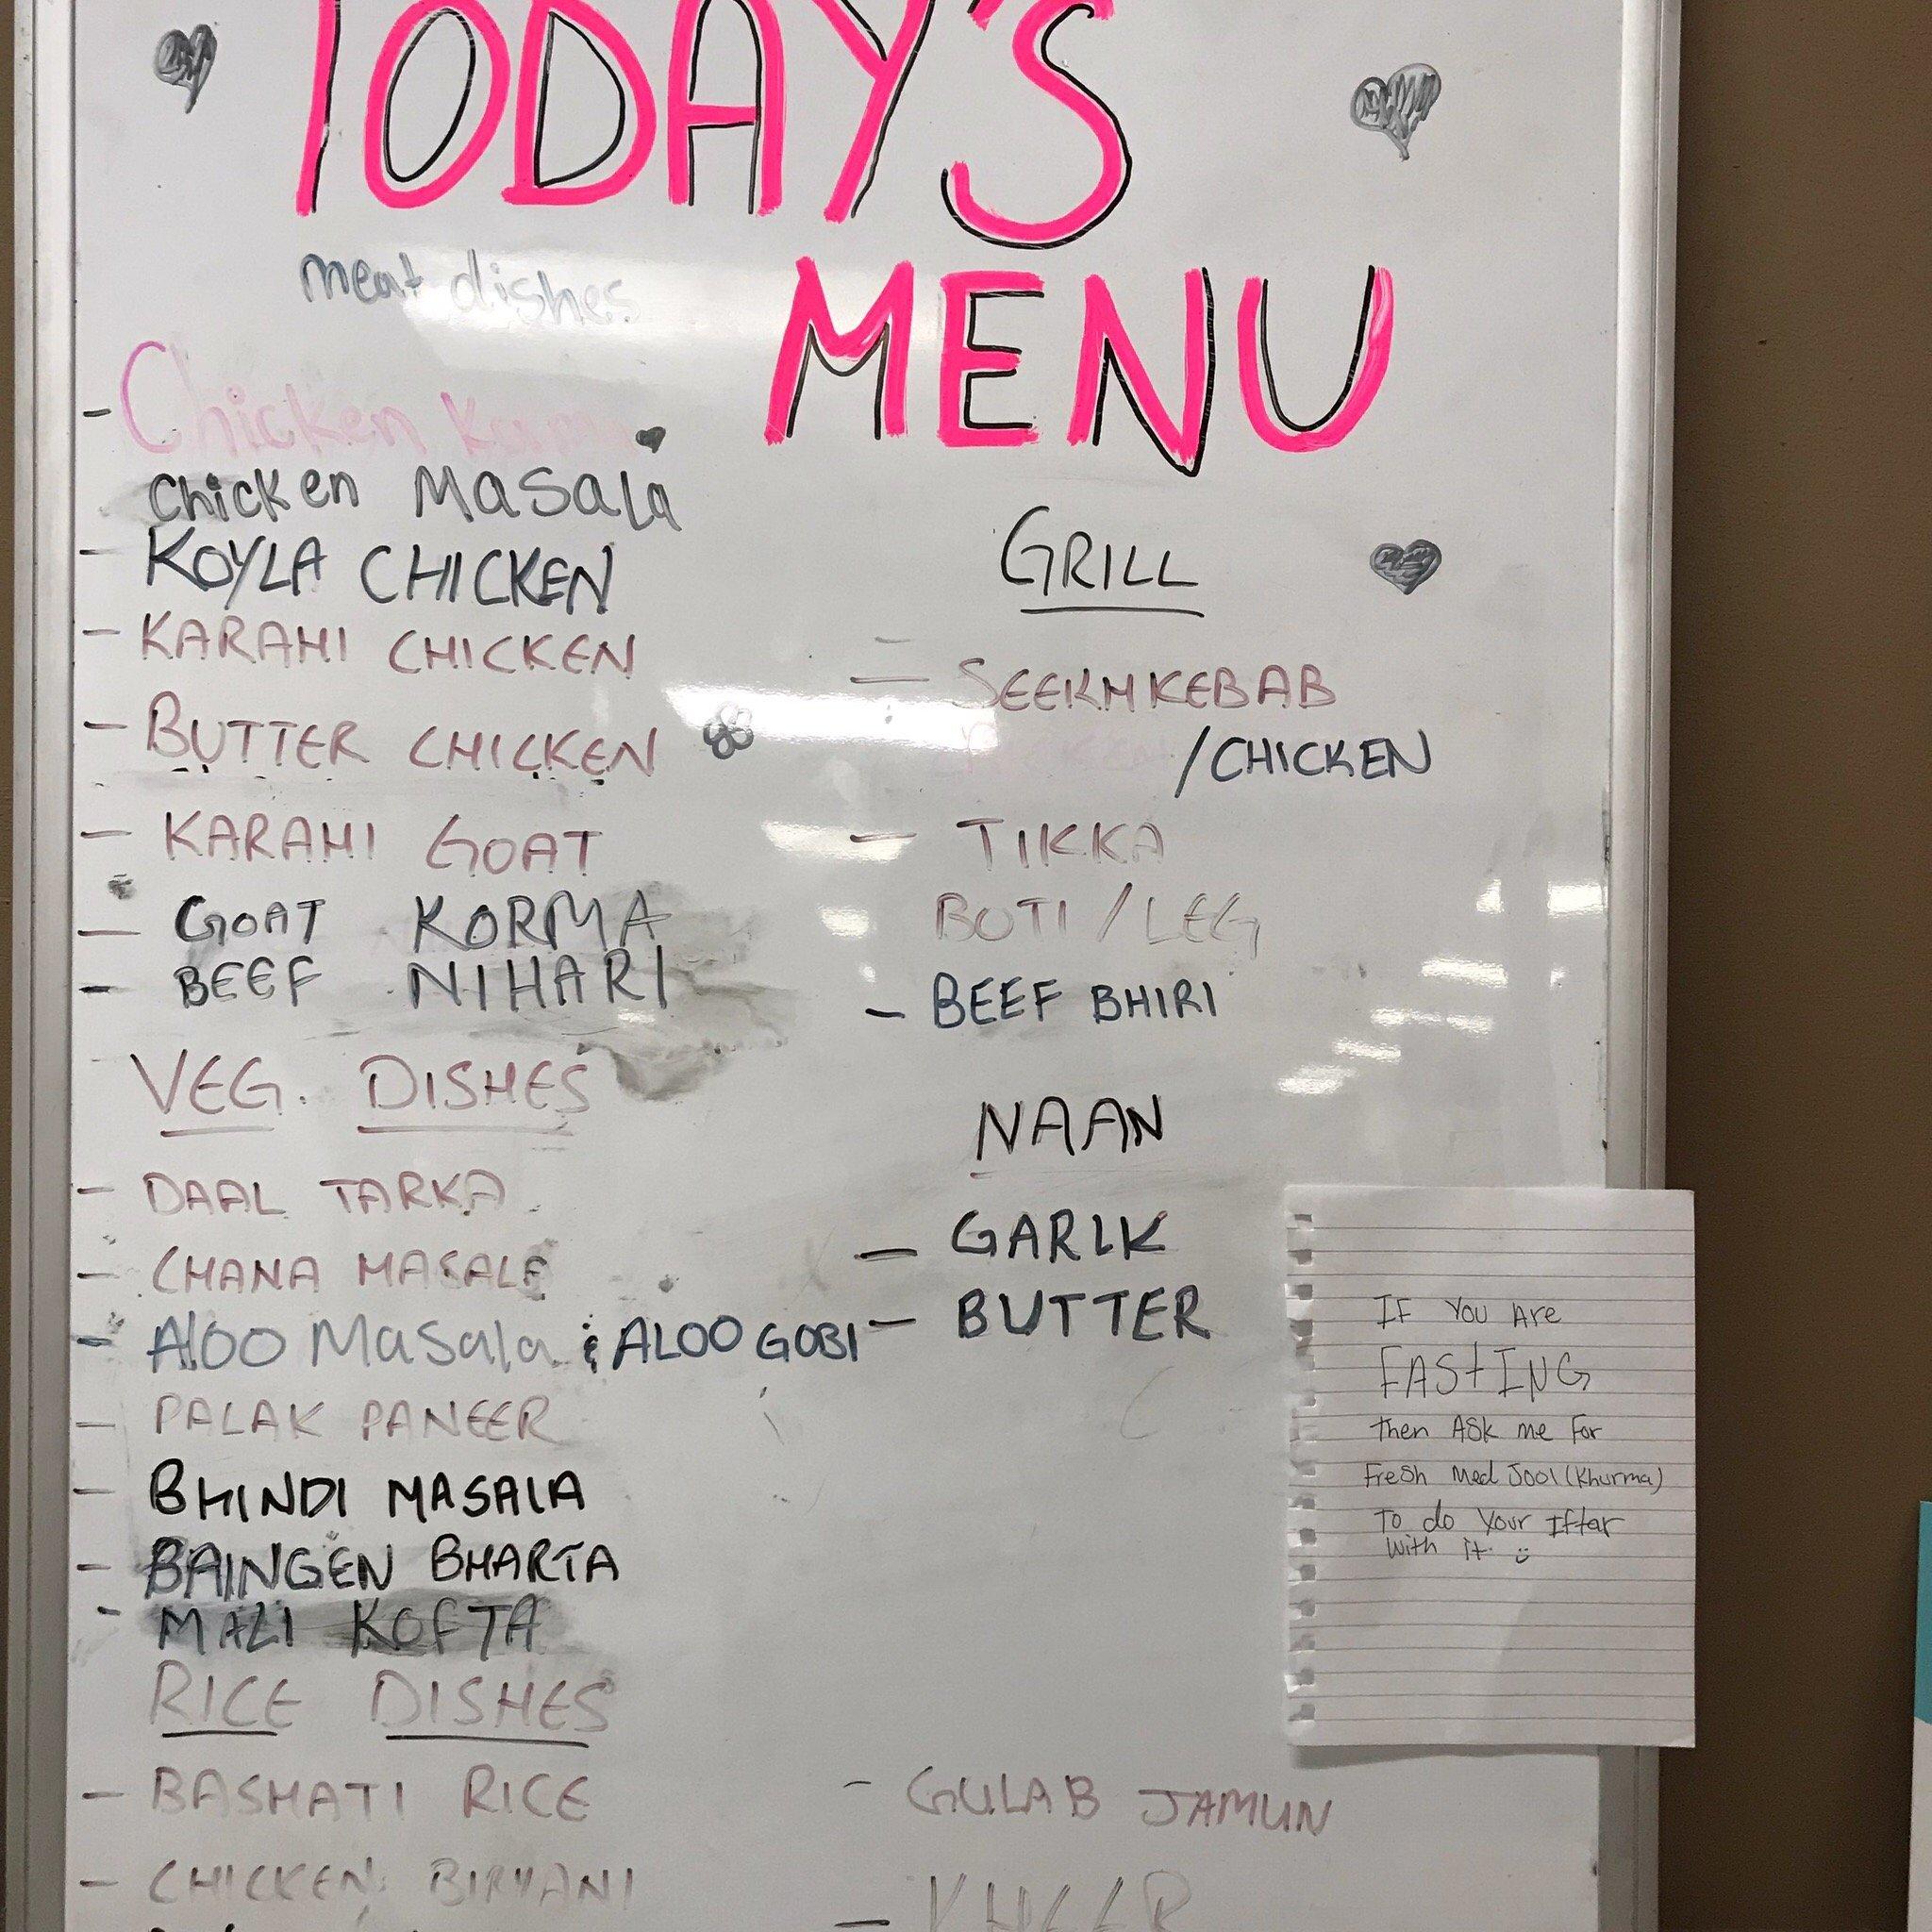 TODAY'S
MENU
meat dishes
- Chicken
Chicken Masala
- KOYLA CHICKEN
- KARAHI CHICKEN
- BUTTER CHICKEN
- KARAHI GOAT
- GOAT KORMA
- BEEF NIHARI
VEG. DISHES
- DAAL TARKA
- CHANA MASALE
- Aloo Masala & ALOO GOBI
- PALAK PANEER
- BHINDI MASALA
- BAINGEN BHARTA
- MALI KOFTA
RICE DISHES
- BASMATI RICE
- CHICKEN BIRYANI
GRILL
- SEEKH KEBAB
/CHICKEN
- TIKKA
BOTI / LEG
- BEEF BHIRI
NAAN
- GARLK
- BUTTER
- GULAB JAMUN
- KHEER
IF You Are
FAStING
then ASk me For
FreSh Med Jool (Khurma)
To do Your Iftar
With it